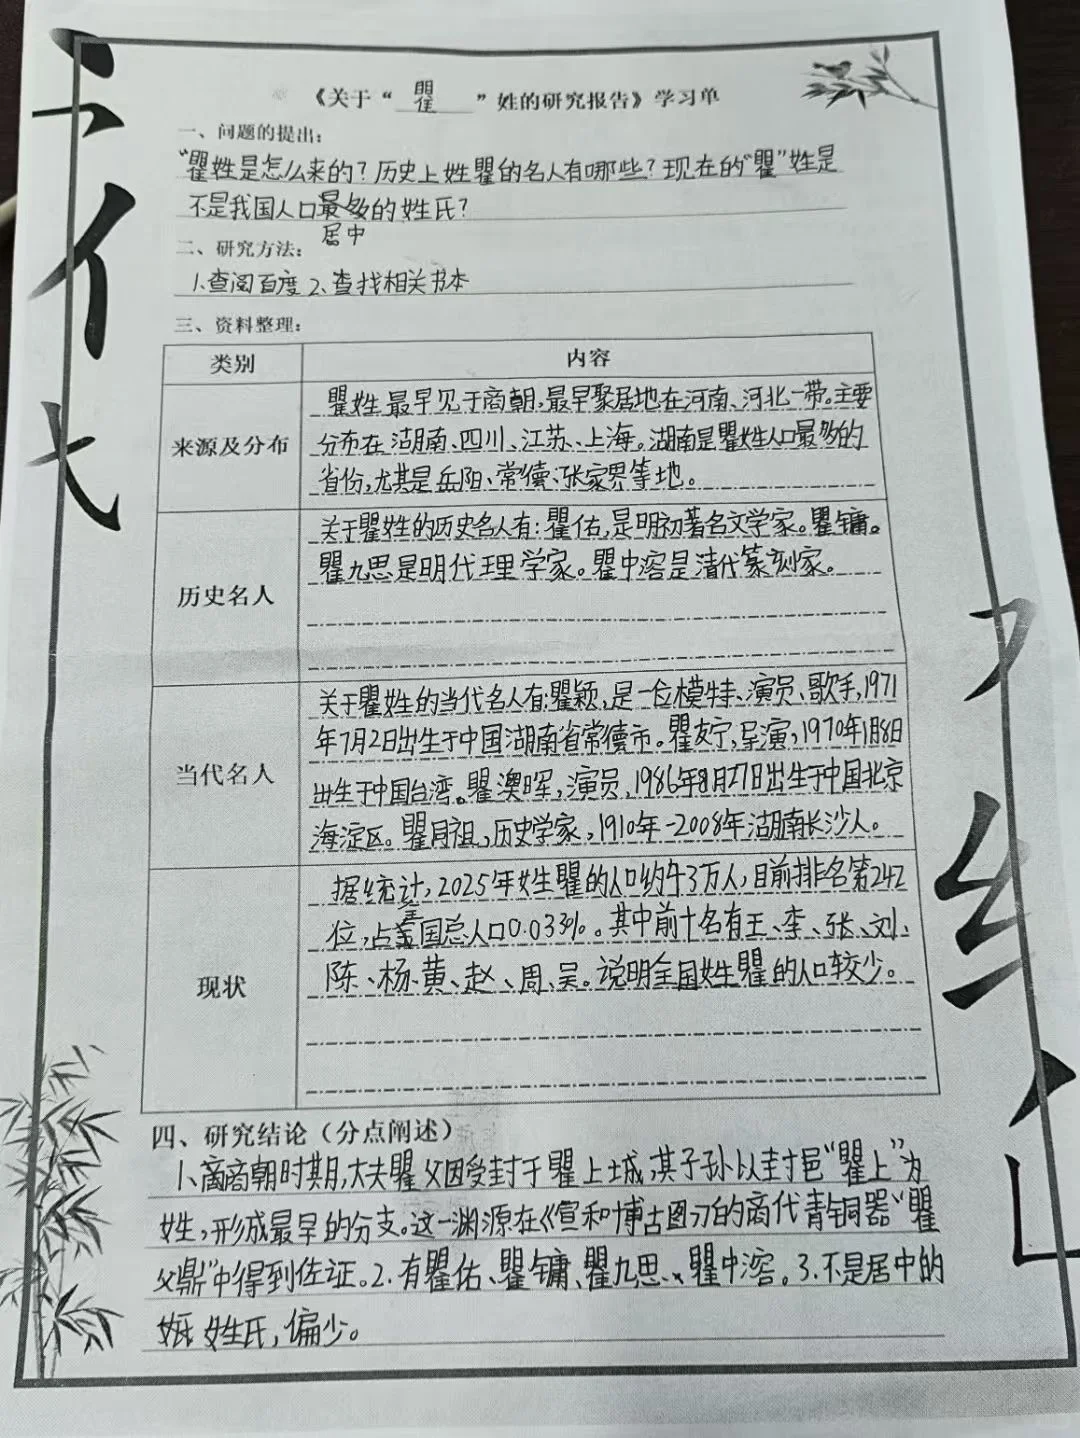 《关于“瞿”姓的研究报告》学习单
一、问题的提出：
“瞿姓是怎么来的？历史上姓瞿的名人有哪些？现在的“瞿”姓是
不是我国人口最多的姓氏？
居中
二、研究方法：
1.查阅百度2、查找相关书本
三、资料整理：
类别 内容
来源及分布
瞿姓最早见于商朝，最早聚居地在河南、河北一带。主要
分布在湖南、四川、江苏、上海。湖南是瞿姓人口最多的
省份，尤其是岳阳、常德、张家界等地。
历史名人
关于瞿姓的历史名人有：瞿佑，是明初著名文学家。瞿镛。
瞿九思是明代理学家。瞿中溶是清代篆刻家。
当代名人
关于瞿姓的当代名人有：瞿颖，是一位模特、演员、歌手，1971
年7月2日出生于中国湖南省常德市。瞿友宁，导演，1970年1月8日
出生于中国台湾。瞿澳晖，演员，1986年8月27日出生于中国北京
海淀区。瞿同祖，历史学家，1910年-2008年湖南长沙人。
现状
据统计，2025年姓瞿的人口约43万人，目前排名第242
位，占全国总人口0.033%。其中前十名有王、李、张、刘、
陈、杨、黄、赵、周、吴。说明全国姓瞿的人口较少。
四、研究结论（分点阐述）
1、商朝时期，大夫瞿父因受封于瞿上城，其子孙以封邑“瞿上”为
姓，形成最早的分支。这一渊源在《宣和博古图》的商代青铜器“瞿
父鼎”中得到佐证。2.有瞿佑、瞿镛、瞿九思、瞿中溶。3.不是居中的
姓氏，偏少。